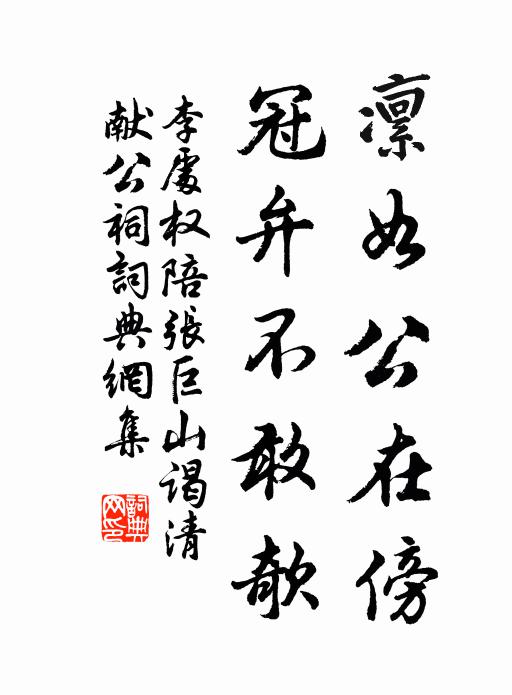 凛如公在傍
冠弁不敢欹
李處权陪張巨山谒清
献公祠詞典網集
詞典网印